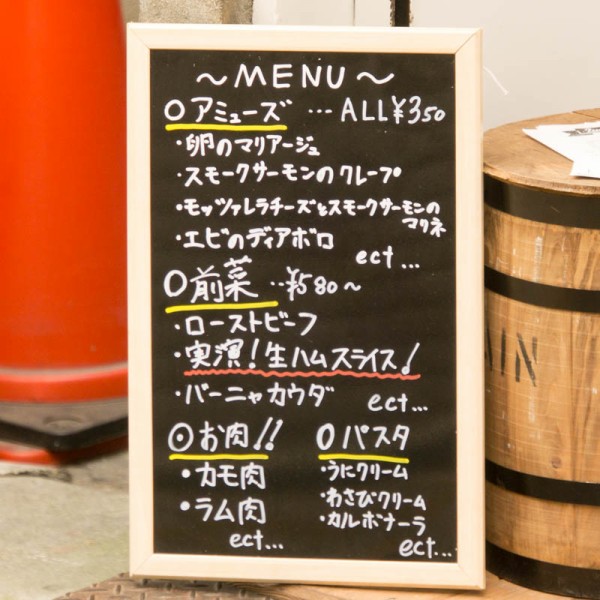 ～MENU～
○アミューズ …ALL¥350
・卵のマリアージュ
・スモークサーモンのクレープ
・モッツァレラチーズとスモークサーモンの
マリネ
・エビのディアボロ
ect...
○前菜 …¥580～
・ローストビーフ
・実演!生ハムスライス!
・バーニャカウダ ect...
◎お肉!!
・カモ肉
・ラム肉
ect...
○パスタ
・うにクリーム
・わさびクリーム
・カルボナーラ
ect...